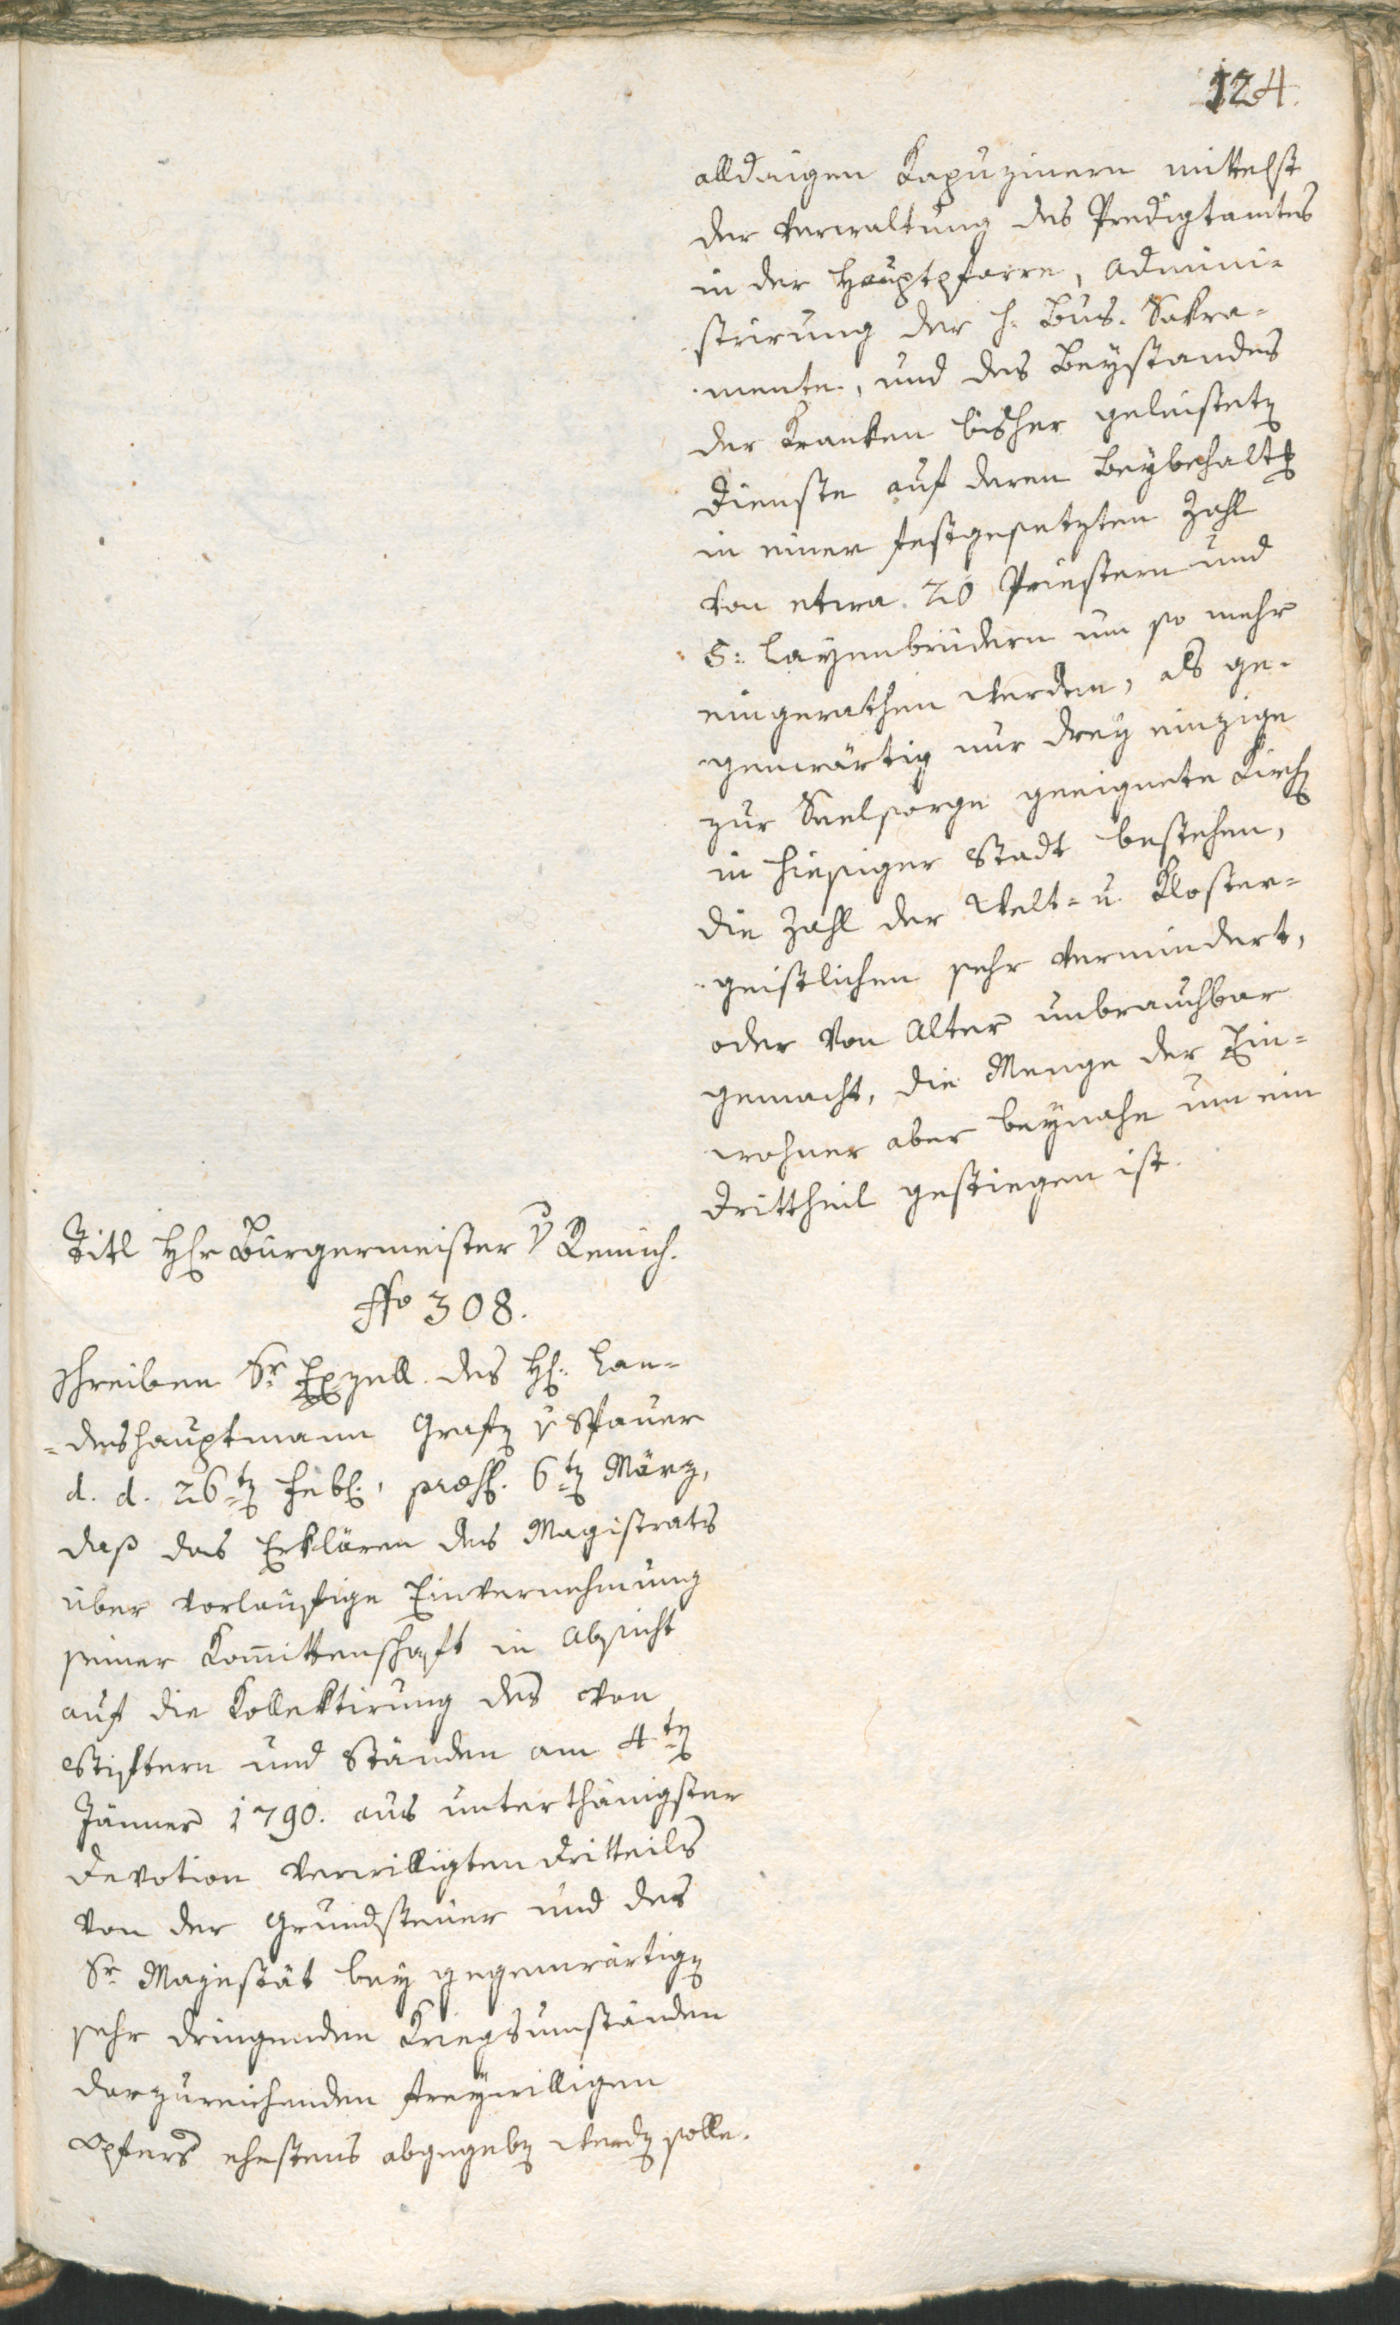 124.
alldaigen Kapuzinern mittelst
der Verwaltung des Predigtamtes
in der Hauptpfarre, Admini-
strirung der h. Bus. Sakra-
mente, und des Beystandes
der Kranken bisher geleisteten
Dienste auf deren Beybehaltung
in einer festgesetzten Zahl
von etwa 20 Priestern und
5: Layenbrüdern um so mehr
eingerathen werden, als ge-
genwärtig nur drey einzige
zur Seelsorge geeignete Kirchen
in hiesiger Stadt bestehen,
die Zahl der Welt- u. Kloster-
geistlichen sehr vermindert,
oder von Alter unbrauchbar
gemacht, die Menge der Ein-
wohner aber beynahe um ein
Drittheil gestiegen ist.
Titl Hr Bürgermeister v Remich.
No 308.
Schreiben Sr Exzell. des H. Lan-
=deshauptmann Grafen v Spauer
d. d. 26ten Feb., præs. 6ten März,
daß das Erklären des Magistrats
über vorläufige Einvernehmung
seiner Kommittenschaft in Absicht
auf die Kollektirung des von
Stiftern und Ständen am 4ten
Jänner 1790. aus unterthänigster
Devotion verwilligten Dritteils
von der Grundsteuer und des
Sr Majestät bey gegenwärtigen
sehr dringenden Kriegsumständen
darzureichenden freywilligen
Opfers ehestens abgegeben werden solle.